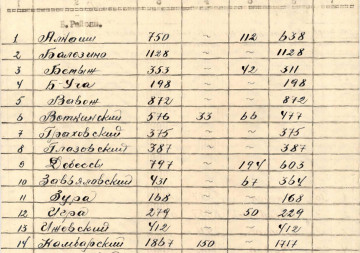 II. Районы.
1 Алнаши 750 ~ 112 638
2 Балезино 1128 ~ ~ 1128
3 Бемыж 353 ~ 42 311
4 Б-Уча 198 ~ ~ 198
5 Вавож 872 ~ ~ 872
6 Воткинский 576 33 66 477
7 Граховский 375 ~ ~ 375
8 Глазовский 387 ~ ~ 387
9 Дебессы 797 ~ 194 603
10 Завьяловский 431 ~ 67 364
11 Зура 168 ~ ~ 168
12 Игра 279 ~ 50 229
13 Ижевский 412 ~ ~ 412
14 Камбарский 1867 150 ~ 1717